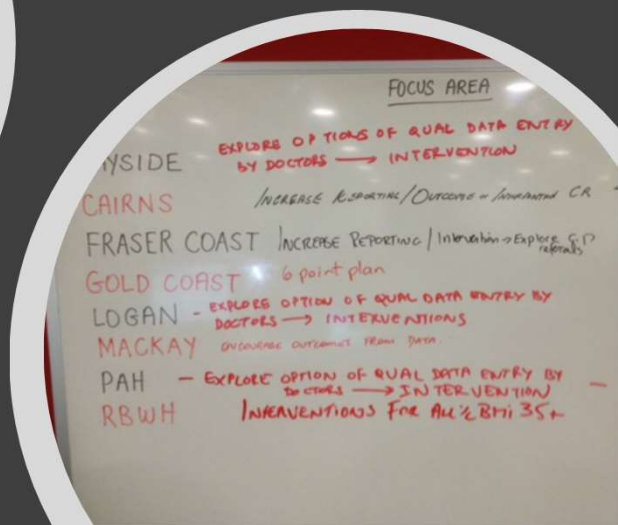 FOCUS AREA
YSIDE EXPLORE OPTIONS OF QUAL DATA ENTRY
BY DOCTORS → INTERVENTION
CAIRNS INCREASE REPORTING / OUTCOME CR
FRASER COAST INCREASE REPORTING / Intervention → Explore GP
referrals
GOLD COAST 6 point plan
LOGAN - EXPLORE OPTION OF QUAL DATA ENTRY BY
DOCTORS → INTERVENTIONS
MACKAY ENCOURAGE OUTCOMES FROM DATA
PAH - EXPLORE OPTION OF QUAL DATA ENTRY BY
DOCTORS → INTERVENTION
RBWH INTERVENTIONS FOR BMi 35+